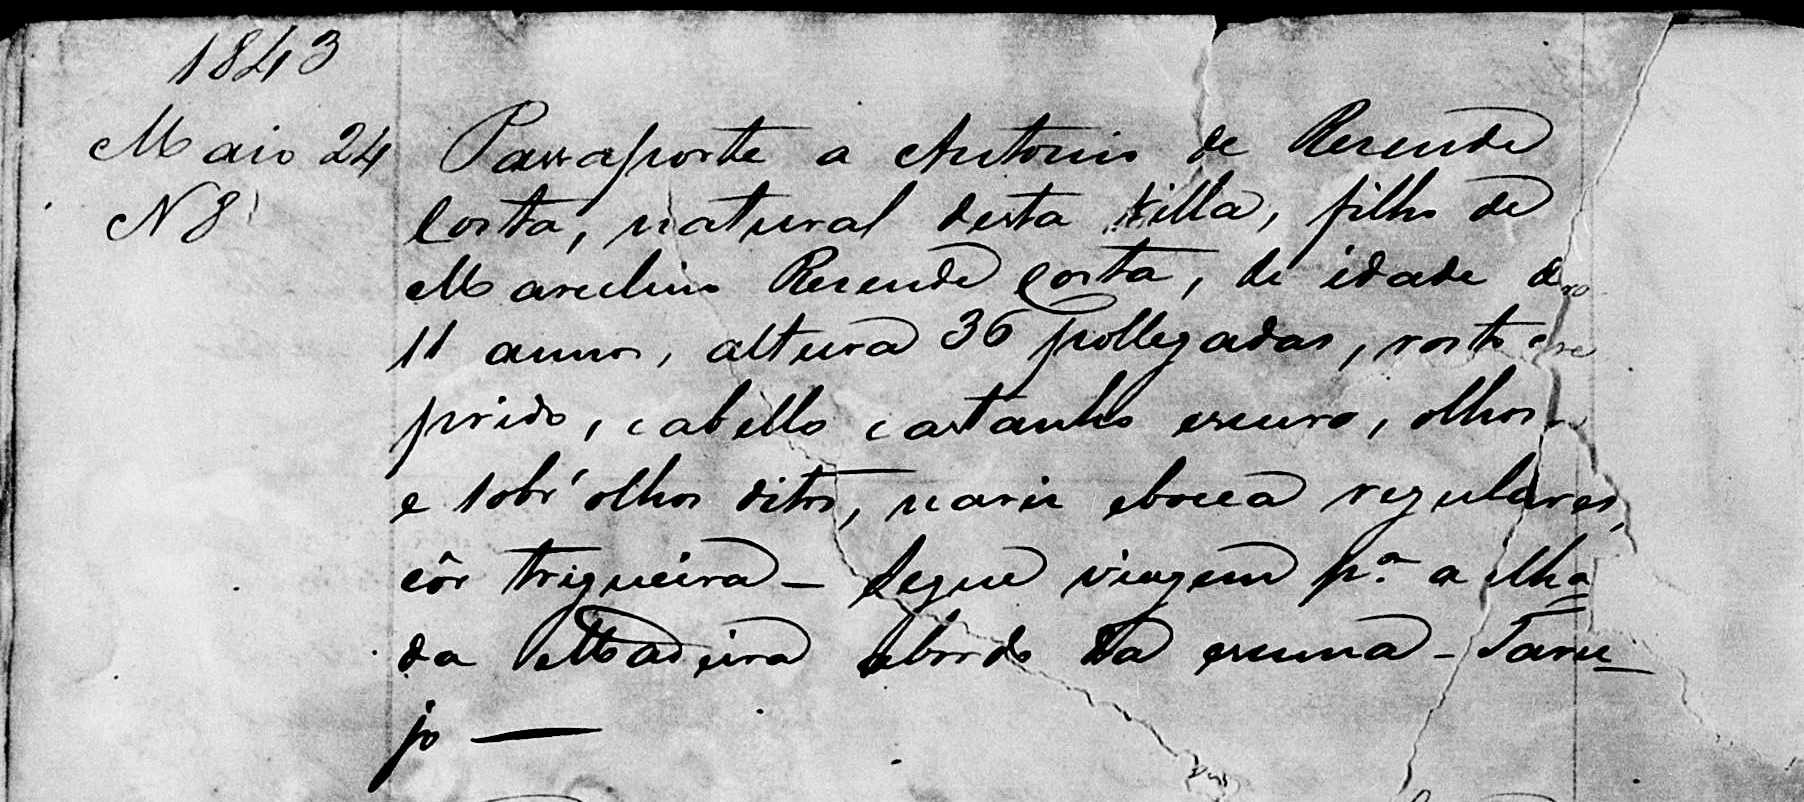 1843
Maio 24 Passaporte a Antonio de Resende
N 8 Costa, natural desta Villa, filho de
Marcelino Resende Costa, de idade de
11 annos, altura 36 pollegadas, rosto
prido, cabello castanho escuro, olhos
e sobr'olhos ditos, nariz eboca regulares,
côr trigueira - Segue viagem p.ª a ilha
da Madeira abordo da escuna - Taru-
jo —